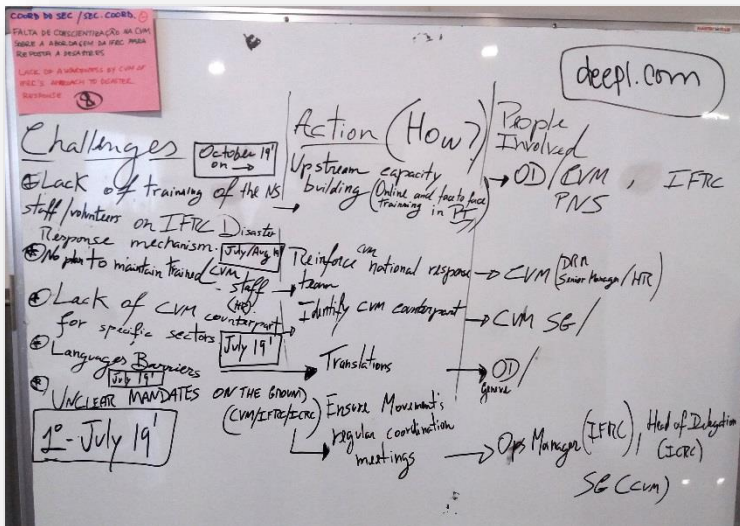 COORD DO SEC / SEC. COORD.
FALTA DE CONSCIENTIZAÇÃO NA CVM
SOBRE A ABORDAGEM DA IFRC PARA
RESPOSTA A DESASTRES
LACK OF AWARENESS BY CVM OF
IFRC'S APPROACH TO DISASTER
RESPONSE
8
deepl.com
Challenges
October 19'
on →
Lack of training of the NS
staff/volunteers on IFRC Disaster
Response mechanism.
July/Aug 19
No plan to maintain trained CVM
staff
(HR)
Lack of CVM counterpart
for specific sectors
July 19'
Languages Barriers
July 19'
UNCLEAR MANDATES ON THE GROUND
(CVM/IFRC/ICRC)
1º - July 19'
Action (How?)
Upstream capacity
building (Online and face to face
trainning in PT)
Reinforce CVM national response
team
Identify CVM counterpart
Translations
Ensure Movement's
regular coordination
meetings
People
Involved
OD/CVM, IFRC
PNS
CVM (DRM
Senior Manager/HR)
CVM SG/
OD/
Geneve
Ops Manager (IFRC), Head of Delegation
(ICRC)
SG (CVM)